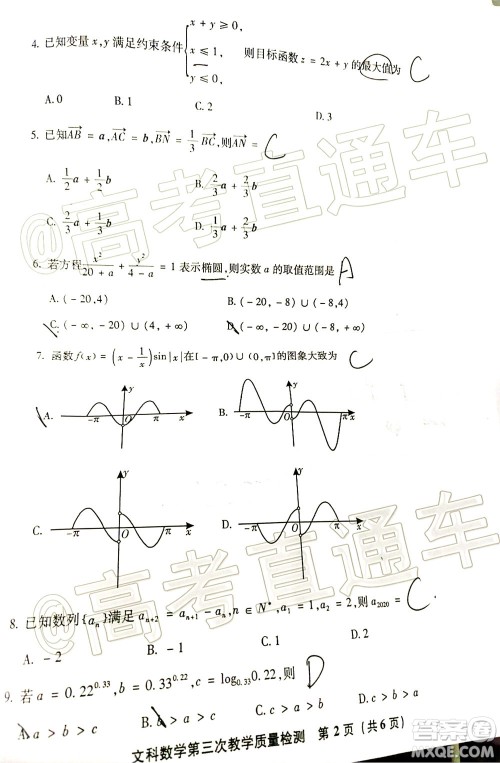 x + y ≥ 0,
4. 已知变量 x, y 满足约束条件 { x ≤ 1, 则目标函数 z = 2x + y 的最大值为 C
y ≤ 0,
A. 0 B. 1 C. 2 D. 3
5. 已知 \overrightarrow{AB} = a, \overrightarrow{AC} = b, \overrightarrow{BN} = \frac{1}{3}\overrightarrow{BC}, 则 \overrightarrow{AN} = C
A. \frac{1}{2}a + \frac{1}{2}b B. \frac{2}{3}a + \frac{2}{3}b
C. \frac{2}{3}a + \frac{1}{3}b D. \frac{1}{3}a + \frac{2}{3}b
6. 若方程 \frac{x^2}{20 + a} + \frac{y^2}{4 - a} = 1 表示椭圆, 则实数 a 的取值范围是 A
A. (-20, 4) B. (-20, -8) ∪ (-8, 4)
C. (-∞, -20) ∪ (4, +∞) D. (-∞, -20) ∪ (-8, +∞)
7. 函数 f(x) = (x - \frac{1}{x}) sin|x| 在 [-π, 0) ∪ (0, π] 的图象大致为 C
A. y -π O π x B. y -π O π x
C. y -π O π x D. y -π O π x
8. 已知数列 {a_n} 满足 a_{n+2} = a_{n+1} - a_n, n ∈ N^*, a_1 = 1, a_2 = 2, 则 a_{2020} = C
A. -2 B. -1 C. 1 D. 2
9. 若 a = 0.22^{0.33}, b = 0.33^{0.22}, c = log_{0.33}0.22, 则 D
A. a > b > c B. b > a > c C. c > a > b D. c > b > a
文科数学第三次教学质量检测 第 2 页 (共 6 页)
高考直通车
高考直通车
答案圈
MXQE.COM